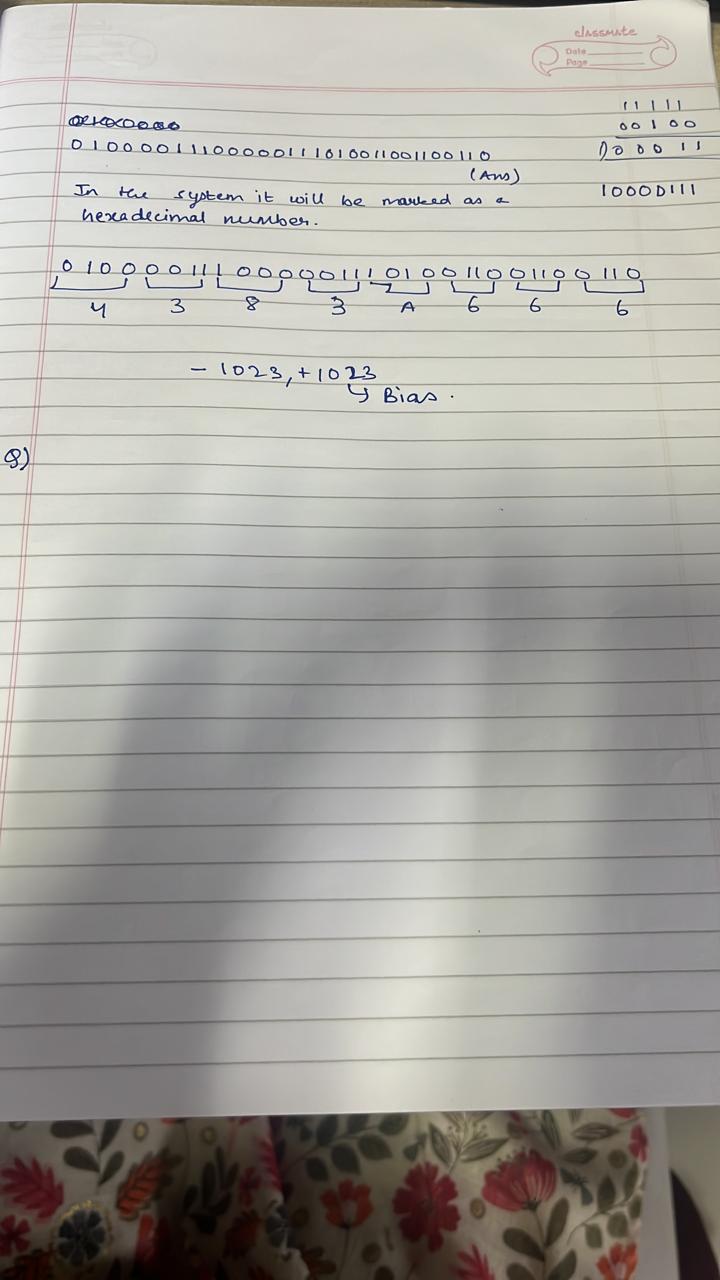 classmate
Date
Page
11111
00100
10000111
01000011100000111010011001100110
(Ans)
In the system it will be marked as a
hexadecimal number.
01000011100000111010011001100110
4 3 8 3 A 6 6 6
- 1023, +1023
↳ Bias.
Q)